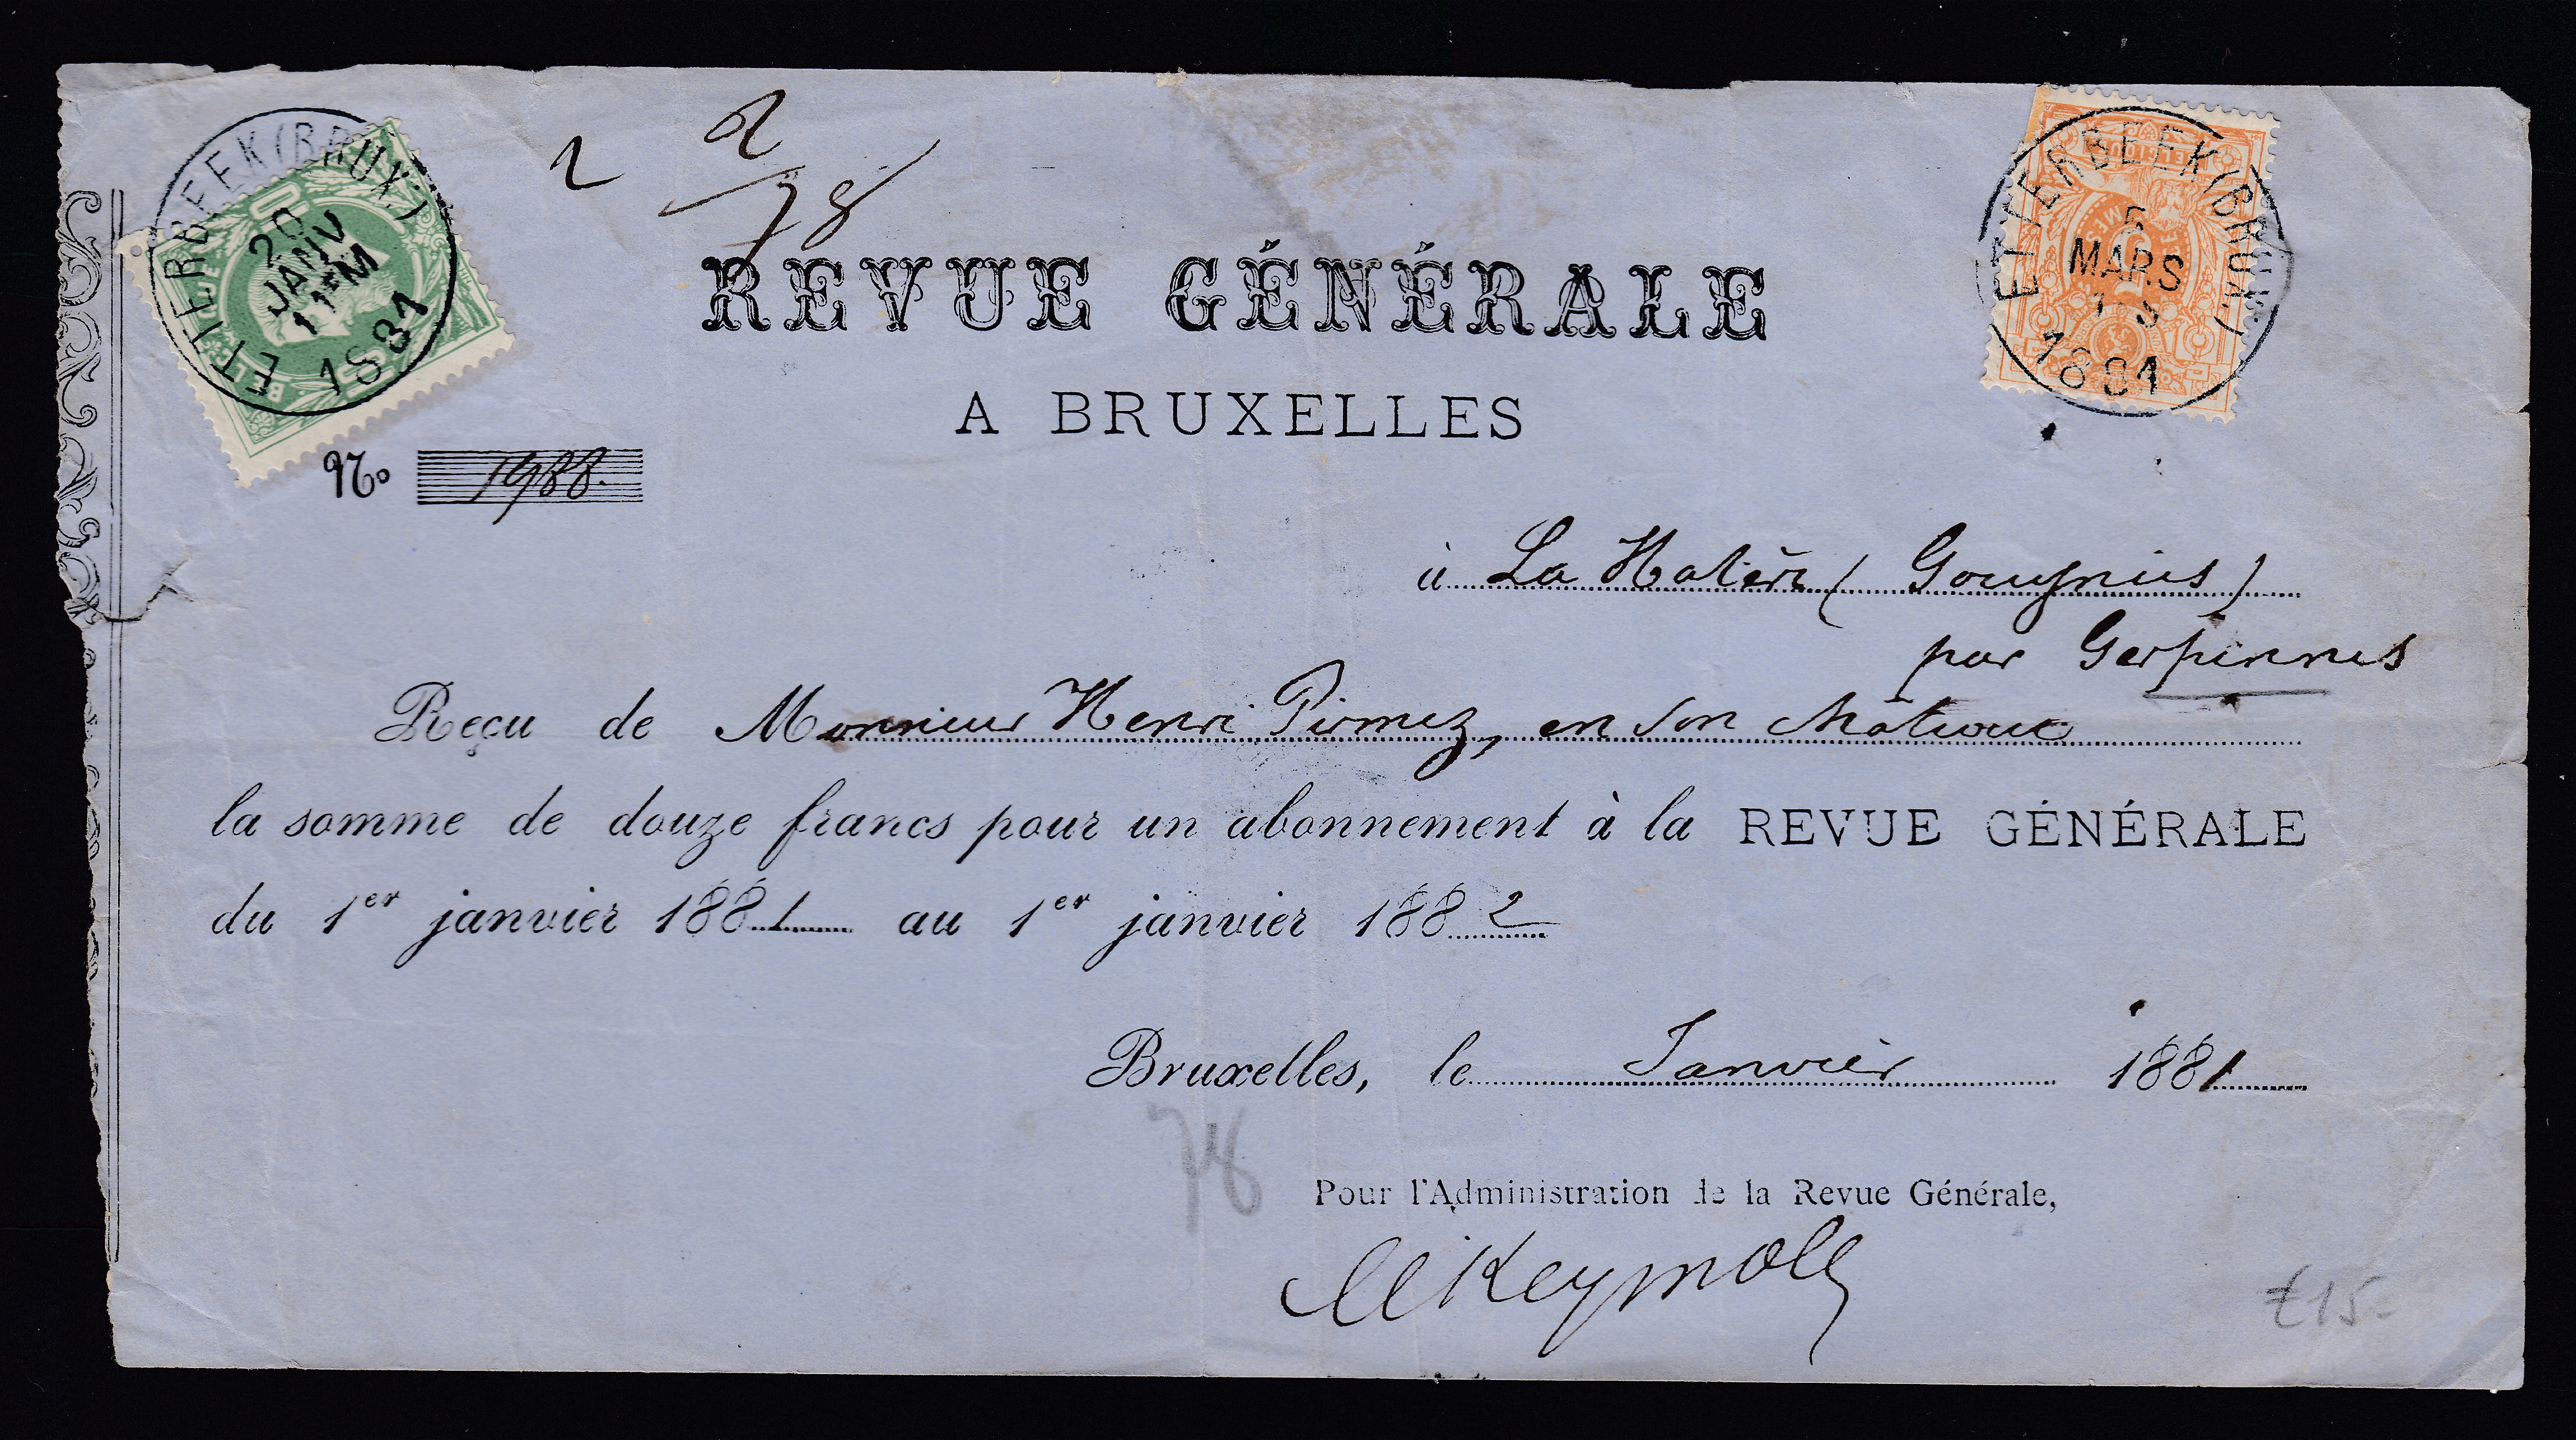 ETTERBEEK (BRUX.)
20
JANV
11 M
1881
2
2
78
ETTERBEEK (BRUX.)
5
MARS
1881
REVUE GÉNÉRALE
A BRUXELLES
No 1988.
à La Hatère (Gougnies)
par Gerpinnes
Reçu de Monsieur Henri Pirmez, en son château
la somme de douze francs pour un abonnement à la REVUE GÉNÉRALE
du 1er janvier 1881 au 1er janvier 1882
Bruxelles, le Janvier 1881
78
Pour l'Administration de la Revue Générale,
£15-